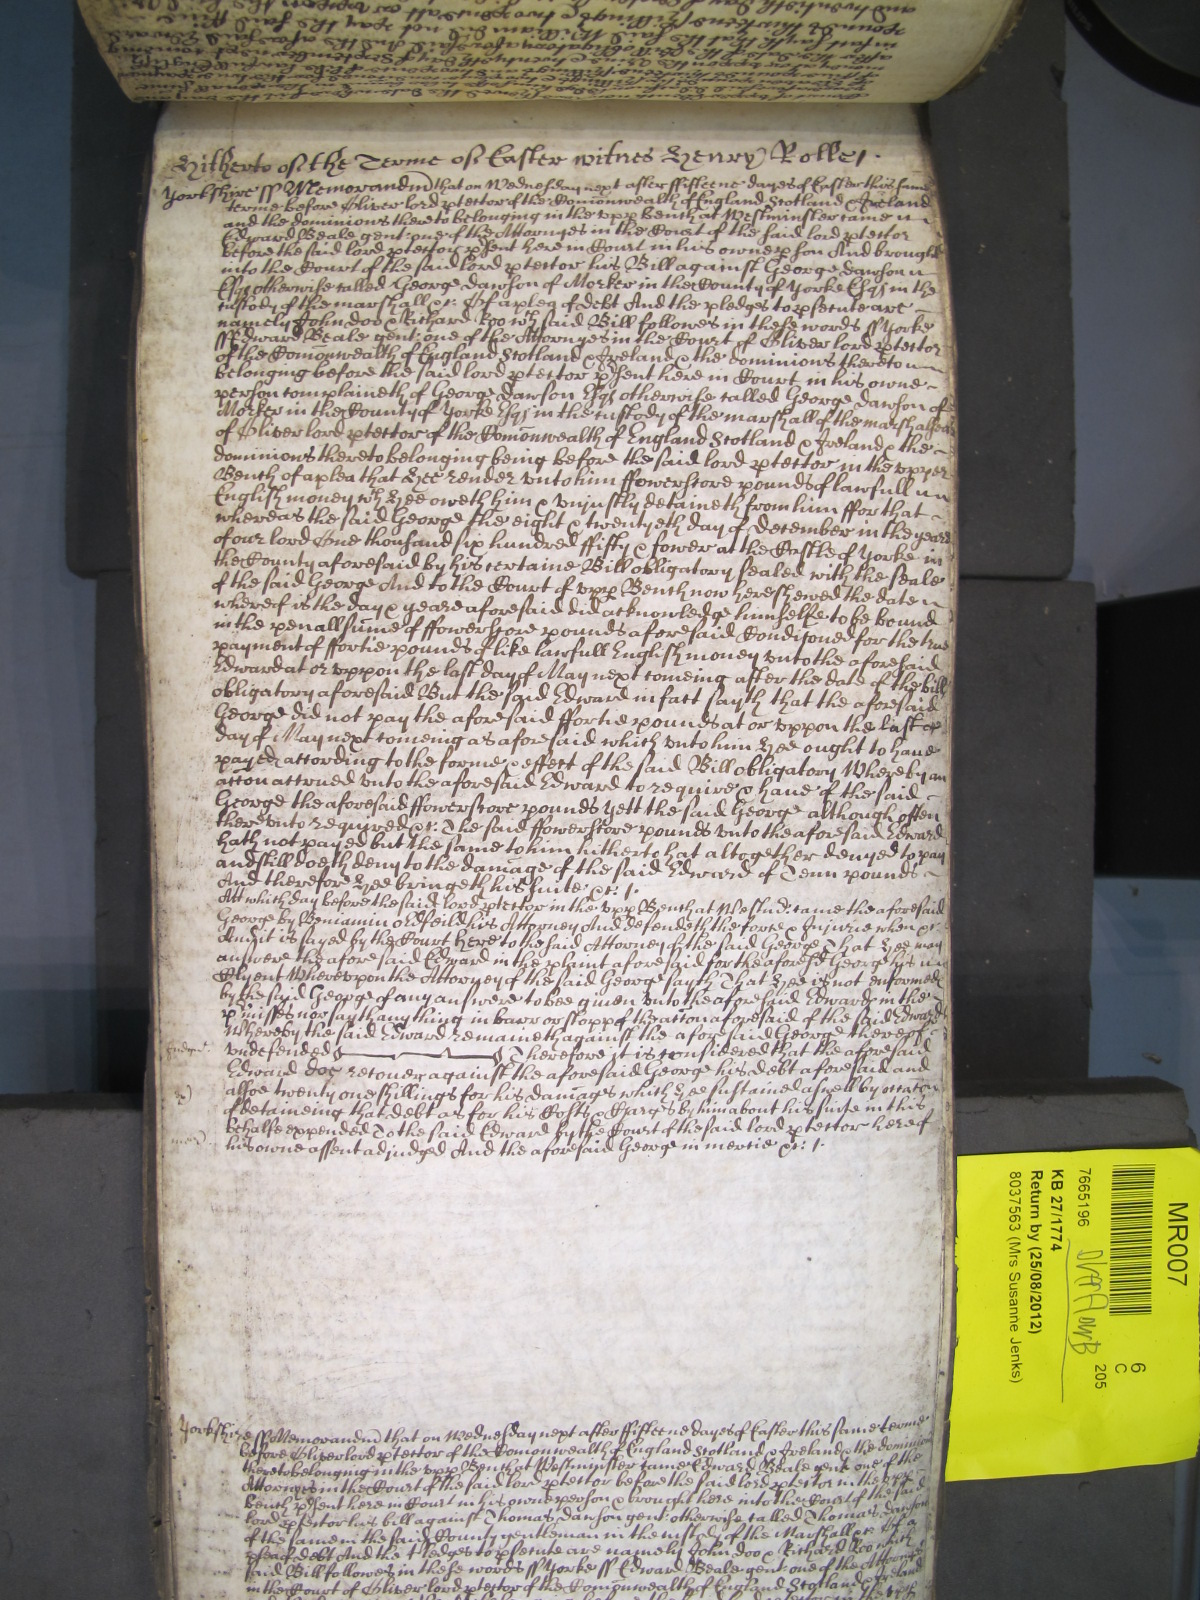 Hitherto of the Terme of Easter witnes Henry Rolle
Yorkshire ss Memorandm that on Wednesday next after ffifteene dayes of Easter this same
terme before Oliver lord ptector of the Comonwealth of England Scotland & Ireland
and the dominions thereto belonging in the vpp Bench at Westminster came
Edward Beale gent: one of the Attornyes in the Court of the said lord ptector
before the said lord ptector psent here in Court in his owne pson And brought
into the Court of the said lord ptector his Bill against George dawson
Esqr otherwise called George dawson of Morker in the County of Yorke Esqr in the
custody of the marshall &c: Of a plea of debt And the pledges to psecute are
namely John doo & Richard Roo wch said Bill followes in these words ss Yorke
ss Edward Beale gent: one of the Attornyes in the Court of Oliver lord ptector
of the Comonwealth of England Scotland & Ireland & the dominions thereto
belonging before the said lord ptector psent here in Court in his owne
person complaineth of George Dawson Esqr otherwise called George dawson of
Morker in the County of Yorke Esqr in the custody of the marshall of the marshalsea
of Oliver lord ptector of the Comonwealth of England Scotland & Ireland & the
dominions thereto belonging being before the said lord ptector in the vpper
Bench of a plea that Hee render vnto him ffowerscore pounds of lawfull
English money wch Hee oweth him & vniustly detaineth from him ffor that
whereas the said George the eight & twentyeth day of december in the yeare
of our lord One thousand six hundred ffifty & fower at the Castle of Yorke in
the County aforesaid by his certaine Bill obligatory sealed with the seale
of the said George And to the Court of vpp Bench now here shewed the date
whereof is the day & yeare aforesaid did acknowledge himselfe to be bound
in the penall sume of ffowerscore pounds aforesaid Condiconed for the true
payment of ffortie pounds of like lawfull English money vnto the aforesaid
Edward at or vppon the last day of May next comeing after the date of the bill
obligatory aforesaid But the said Edward in fact sayth that the aforesaid
George did not pay the aforesaid ffortie pounds at or vppon the last
day of May next comeing as aforesaid which vnto him Hee ought to haue
payed according to the forme & effect of the said Bill obligatory Whereby an
accon accrued vnto the aforesaid Edward to require & haue of the said
George the aforesaid ffowerscore pounds Yett the said George although often
there vnto required &c: The said ffowerscore pounds vnto the aforesaid Edward
hath not payed but the same to him hitherto hat altogether denyed to pay
and still doeth deny to the damage of the said Edward of Tenn pounds
And therefore Hee bringeth his suite &c:
Att which day before the said lord ptector in the vpp Bench at Westmr: came the aforesaid
George by Beniamin oldfeild his Attorney And defendeth the force & Iniurie when &c:
And it is sayed by the Court here to the said Attorney of the said George That Hee may
answere the aforesaid Edward in the plaint aforesaid for the aforesd George his
Clyent Wherevppon the Attorney of the said George sayth That Hee is not enformed
by the said George of any answere to bee giuen vnto the aforesaid Edward in the
pmisses nor say thanything in barr or stopp of the accon aforesaid of the said Edward
Whereby the said Edward remaineth against the aforesaid George thereof
vndefended Therefore it is considered that the aforesaid
Edward doe recouer against the aforesaid George his debt aforesaid and
allsoe twenty one shillings for his damages which Hee sustained aswell by occacon
of detaineing that debt as for his Costs & Charges by him about his suite in this
behalfe expended To the said Edward by the Court of the said lord ptector here of
his owne assent adjudged And the aforesaid George in mercie &c:
Yorkshire ss Memorandm that on Wednesday next after ffifteene dayes of Easter this same terme
before Oliver lord ptector of the Comonwealth of England Scotland & Ireland & the dominions
thereto belonging in the vpp Bench at Westminster came Edward Beale gent: one of the
Attornyes in the Court of the said lord ptector before the said lord ptector in the vpp
bench psent here in Court in his owne person & brought here into the Court of the said
lord ptector his bill against Thomas dawson gent: otherwise called Thomas dawson
of the same in the said County gentleman in the custody of the Marshall &c: Of a
plea of debt And the Pledges to psecute are namely John doo & Richard Roo which
said Bill followes in these words ss Yorke ss Edward Beale gent: one of the Attornyes
in the Court of Oliver lord ptector of the Comonwealth of England Scotland & Ireland
MR007
6
C
205
7665196
KB 27/1774
Return by (25/08/2012)
8037563 (Mrs Susanne Jenks)